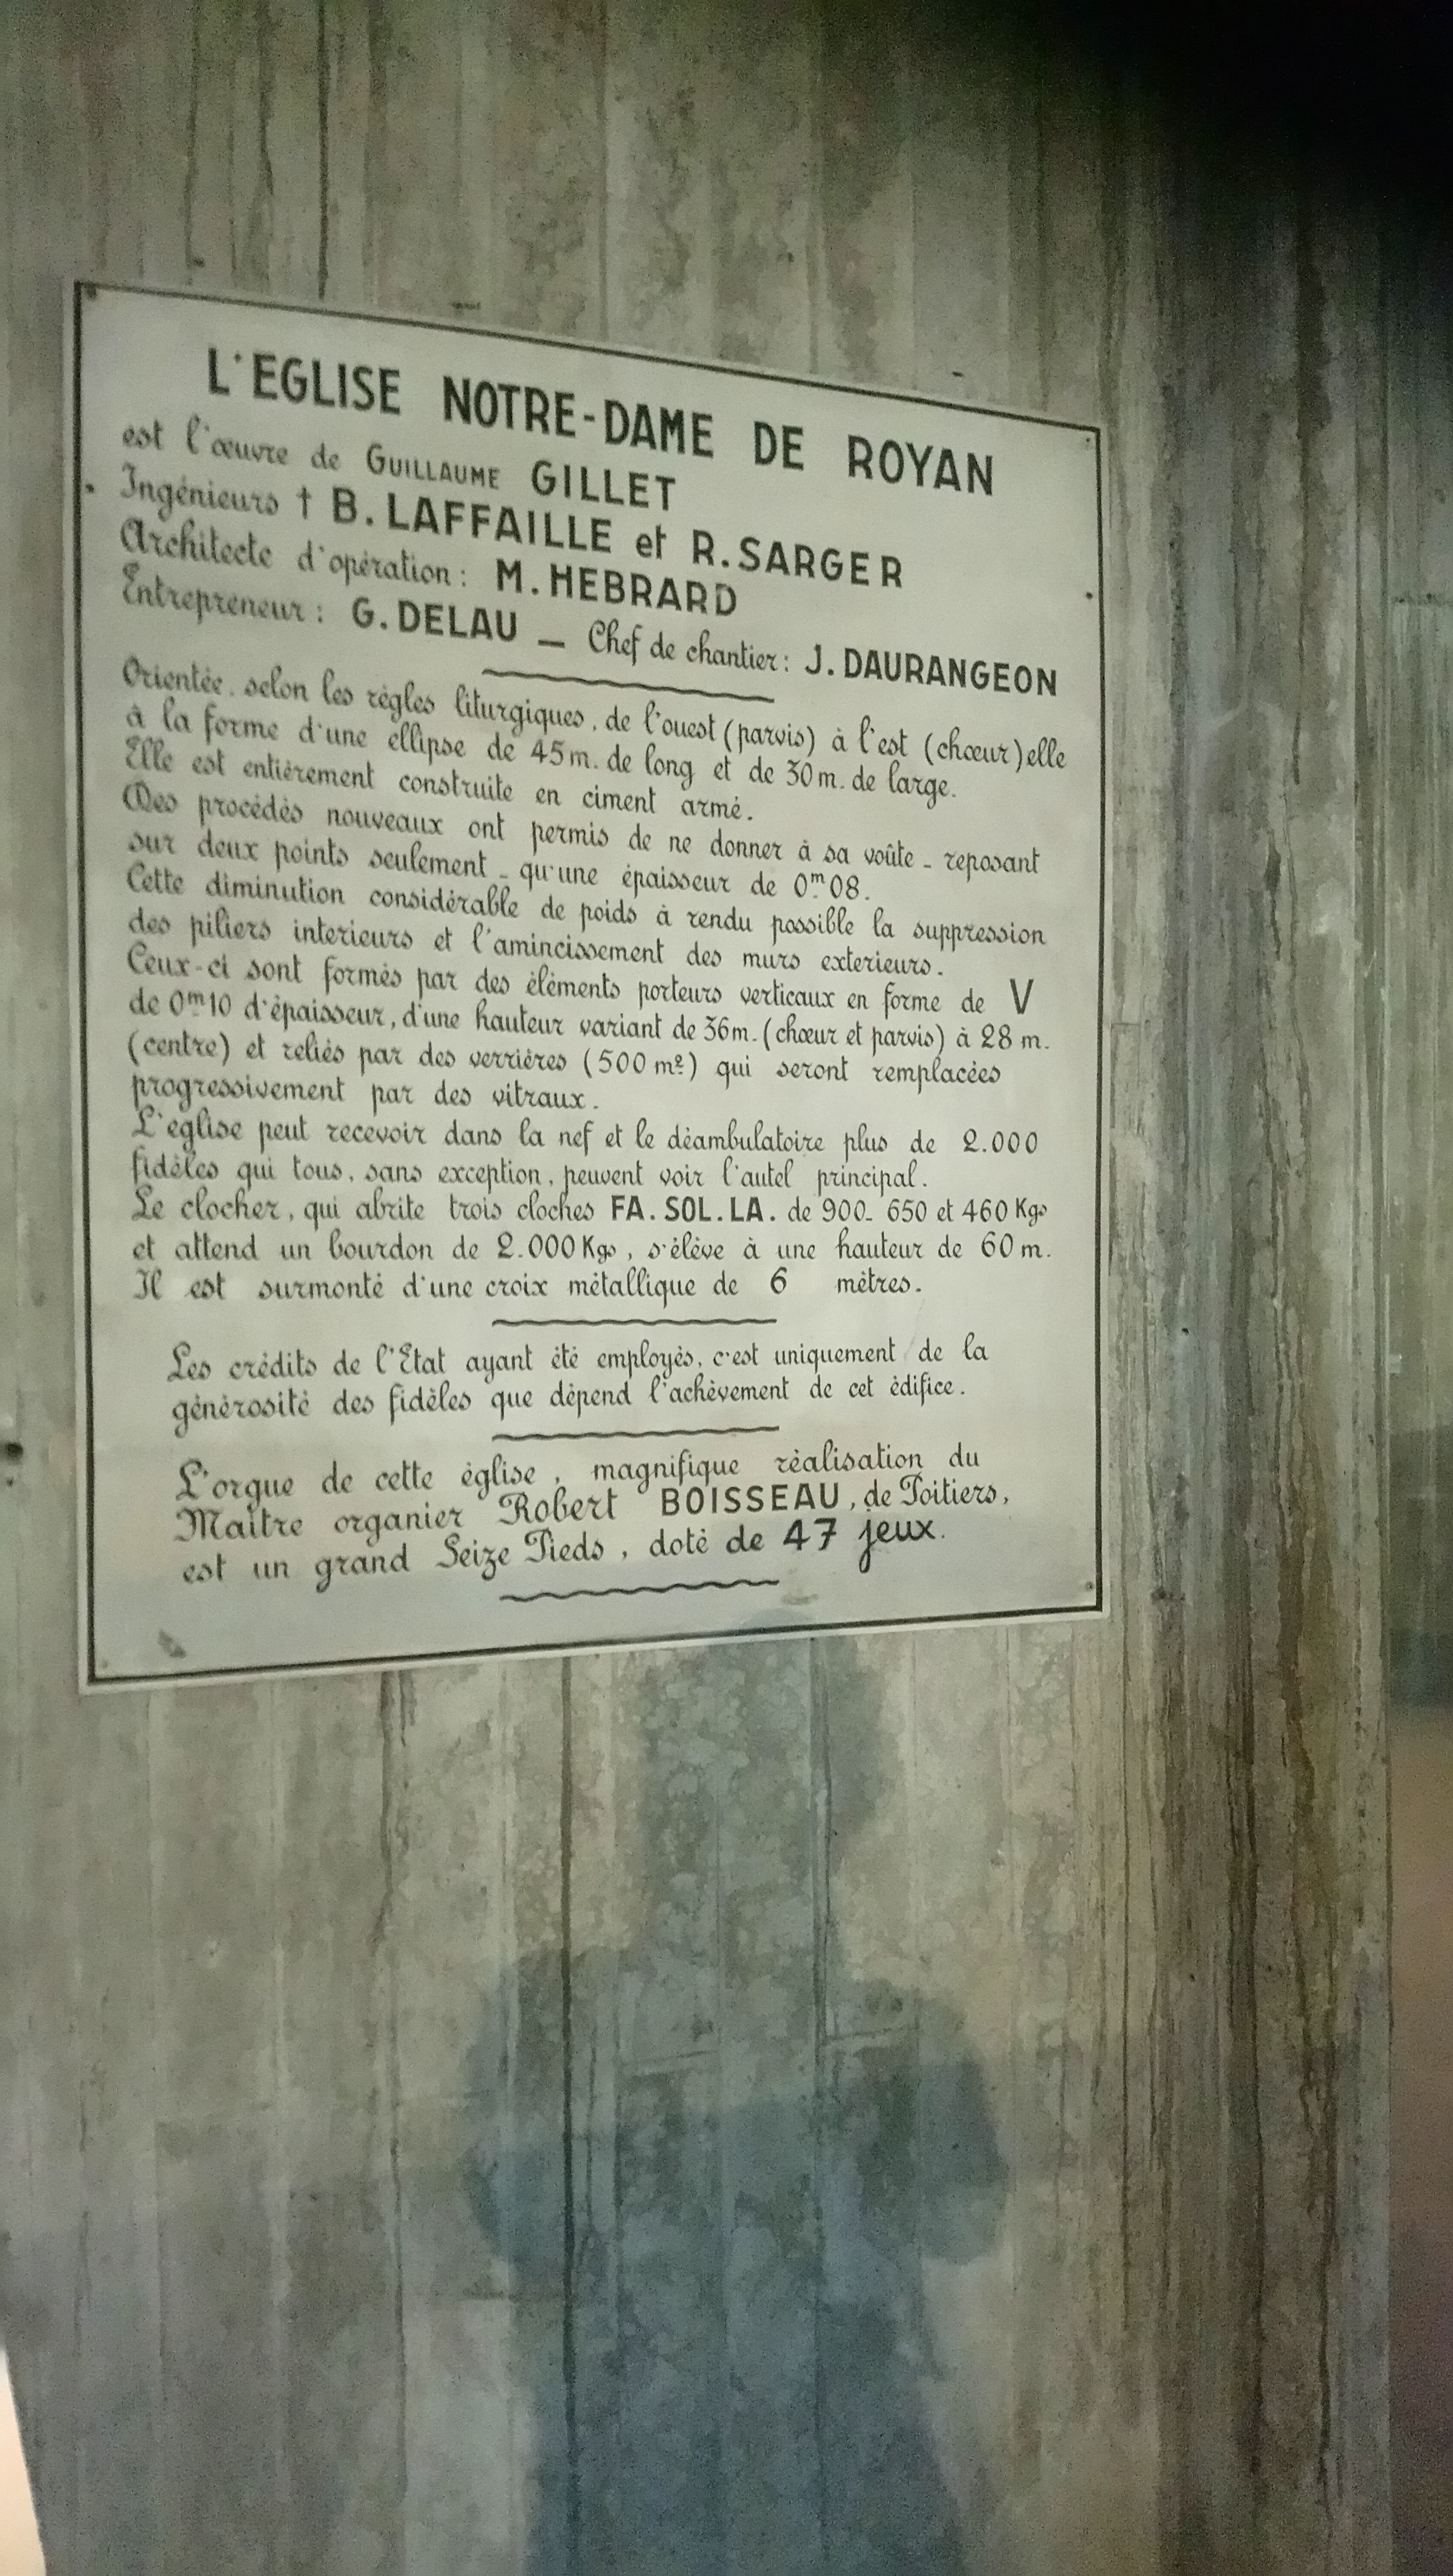 L'EGLISE NOTRE-DAME DE ROYAN
est l'œuvre de GUILLAUME GILLET
Ingénieurs † B. LAFFAILLE et R. SARGER
Architecte d'opération : M. HEBRARD
Entrepreneur : G. DELAU — Chef de chantier : J. DAURANGEON
Orientée, selon les règles liturgiques, de l'ouest (parvis) à l'est (chœur) elle
à la forme d'une ellipse de 45 m. de long et de 30 m. de large.
Elle est entièrement construite en ciment armé.
Des procédés nouveaux ont permis de ne donner à sa voûte - reposant
sur deux points seulement - qu'une épaisseur de 0m08.
Cette diminution considérable de poids à rendu possible la suppression
des piliers interieurs et l'amincissement des murs exterieurs.
Ceux-ci sont formés par des éléments porteurs verticaux en forme de V
de 0m10 d'épaisseur, d'une hauteur variant de 36 m. (chœur et parvis) à 28 m.
(centre) et reliés par des verrières (500 m2) qui seront remplacées
progressivement par des vitraux.
L'eglise peut recevoir dans la nef et le déambulatoire plus de 2.000
fidèles qui tous, sans exception, peuvent voir l'autel principal.
Le clocher, qui abrite trois cloches FA. SOL. LA. de 900- 650 et 460 Kgs
et attend un bourdon de 2.000 Kgs, s'élève à une hauteur de 60 m.
Il est surmonté d'une croix métallique de 6 mètres.
Les crédits de l'Etat ayant été employés, c'est uniquement de la
générosité des fidèles que dépend l'achèvement de cet édifice.
L'orgue de cette église, magnifique réalisation du
Maître organier Robert BOISSEAU, de Poitiers,
est un grand Seize Pieds, doté de 47 jeux.